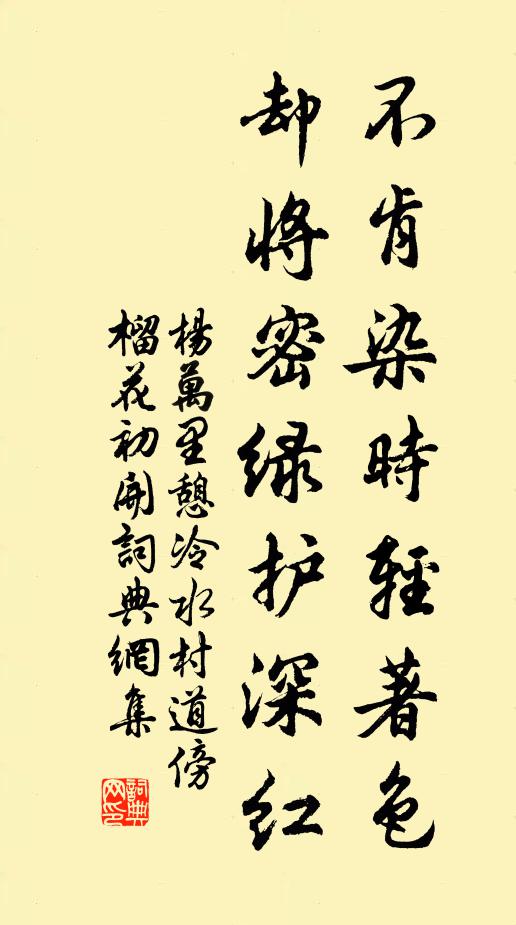 不肯染時輕著色
却將密绿护深红
楊萬里憩冷水村道傍
榴花初開詞典網集
詞典
网印